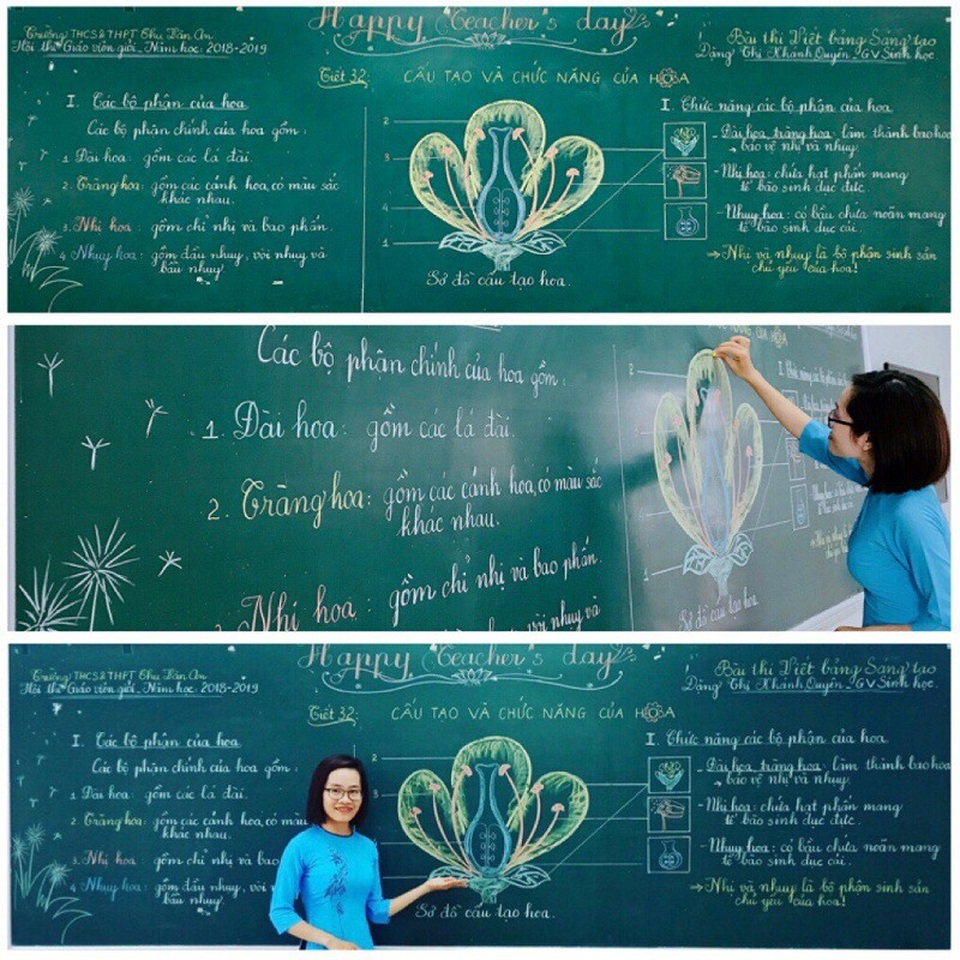 Happy Teacher's day
Trường THCS & THPT Chu Văn An
Hội thi Giáo viên giỏi. Năm học: 2018-2019
Bài thi Viết bảng Sáng tạo
Đặng Thị Khánh Quyên - GV Sinh học.
Tiết 32: CẤU TẠO VÀ CHỨC NĂNG CỦA HOA
I. Các bộ phận của hoa
Các bộ phận chính của hoa gồm:
1. Đài hoa: gồm các lá đài.
2. Tràng hoa: gồm các cánh hoa, có màu sắc
khác nhau.
3. Nhị hoa: gồm chỉ nhị và bao phấn.
4. Nhuỵ hoa: gồm đầu nhuỵ, vòi nhuỵ và
bầu nhuỵ.
2
3
4
1
Sơ đồ cấu tạo hoa.
I. Chức năng các bộ phận của hoa
- Đài hoa, tràng hoa: làm thành bao hoa
→ bảo vệ nhị và nhuỵ.
- Nhị hoa: chứa hạt phấn mang
tế bào sinh dục đực.
- Nhuỵ hoa: có bầu chứa noãn mang
tế bào sinh dục cái.
→ Nhị và nhuỵ là bộ phận sinh sản
chủ yếu của hoa!
Các bộ phận chính của hoa gồm:
1. Đài hoa: gồm các lá đài.
2. Tràng hoa: gồm các cánh hoa, có màu sắc
khác nhau.
Nhị hoa: gồm chỉ nhị và bao phấn.
vòi nhuỵ và
CỦA HOA
2
3
4
1
Sơ đồ cấu tạo hoa
Happy Teacher's day
Trường THCS & THPT Chu Văn An
Hội thi Giáo viên giỏi. Năm học: 2018-2019
Bài thi Viết bảng Sáng tạo
Đặng Thị Khánh Quyên - GV Sinh học.
Tiết 32: CẤU TẠO VÀ CHỨC NĂNG CỦA HOA
I. Các bộ phận của hoa
Các bộ phận chính của hoa gồm:
1. Đài hoa: gồm các lá đài.
2. Tràng hoa: gồm các cánh hoa, có màu
khác nhau.
3. Nhị hoa: gồm chỉ nhị và bao
4. Nhuỵ hoa: gồm đầu nhuỵ, vòi
bầu nhuỵ.
2
Sơ đồ cấu tạo hoa.
I. Chức năng các bộ phận của hoa
- Đài hoa, tràng hoa: làm thành bao hoa
→ bảo vệ nhị và nhuỵ.
- Nhị hoa: chứa hạt phấn mang
tế bào sinh dục đực.
- Nhuỵ hoa: có bầu chứa noãn mang
tế bào sinh dục cái.
→ Nhị và nhuỵ là bộ phận sinh sản
chủ yếu của hoa!